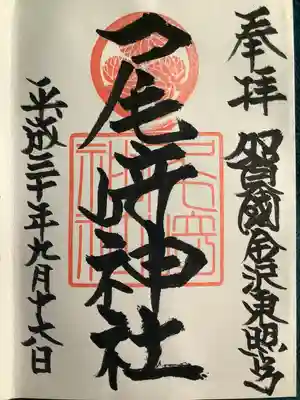 奉拝
加賀國金沢東照宮
尾崎神社
尾崎
神社
平成三十年九月十六日